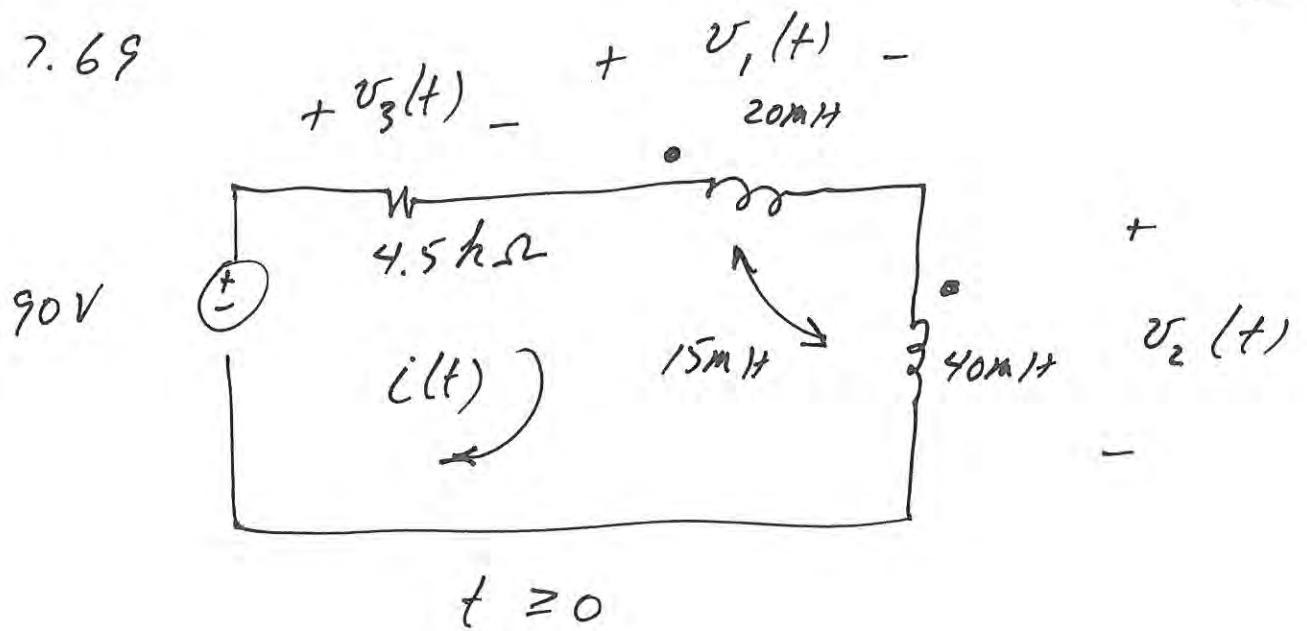 7.69
+ v₃(t) -
+ v₁(t) -
20mH
4.5kΩ
+
-
90V
i(t)
15mH
40mH
+
v₂(t)
-
t ≥ 0